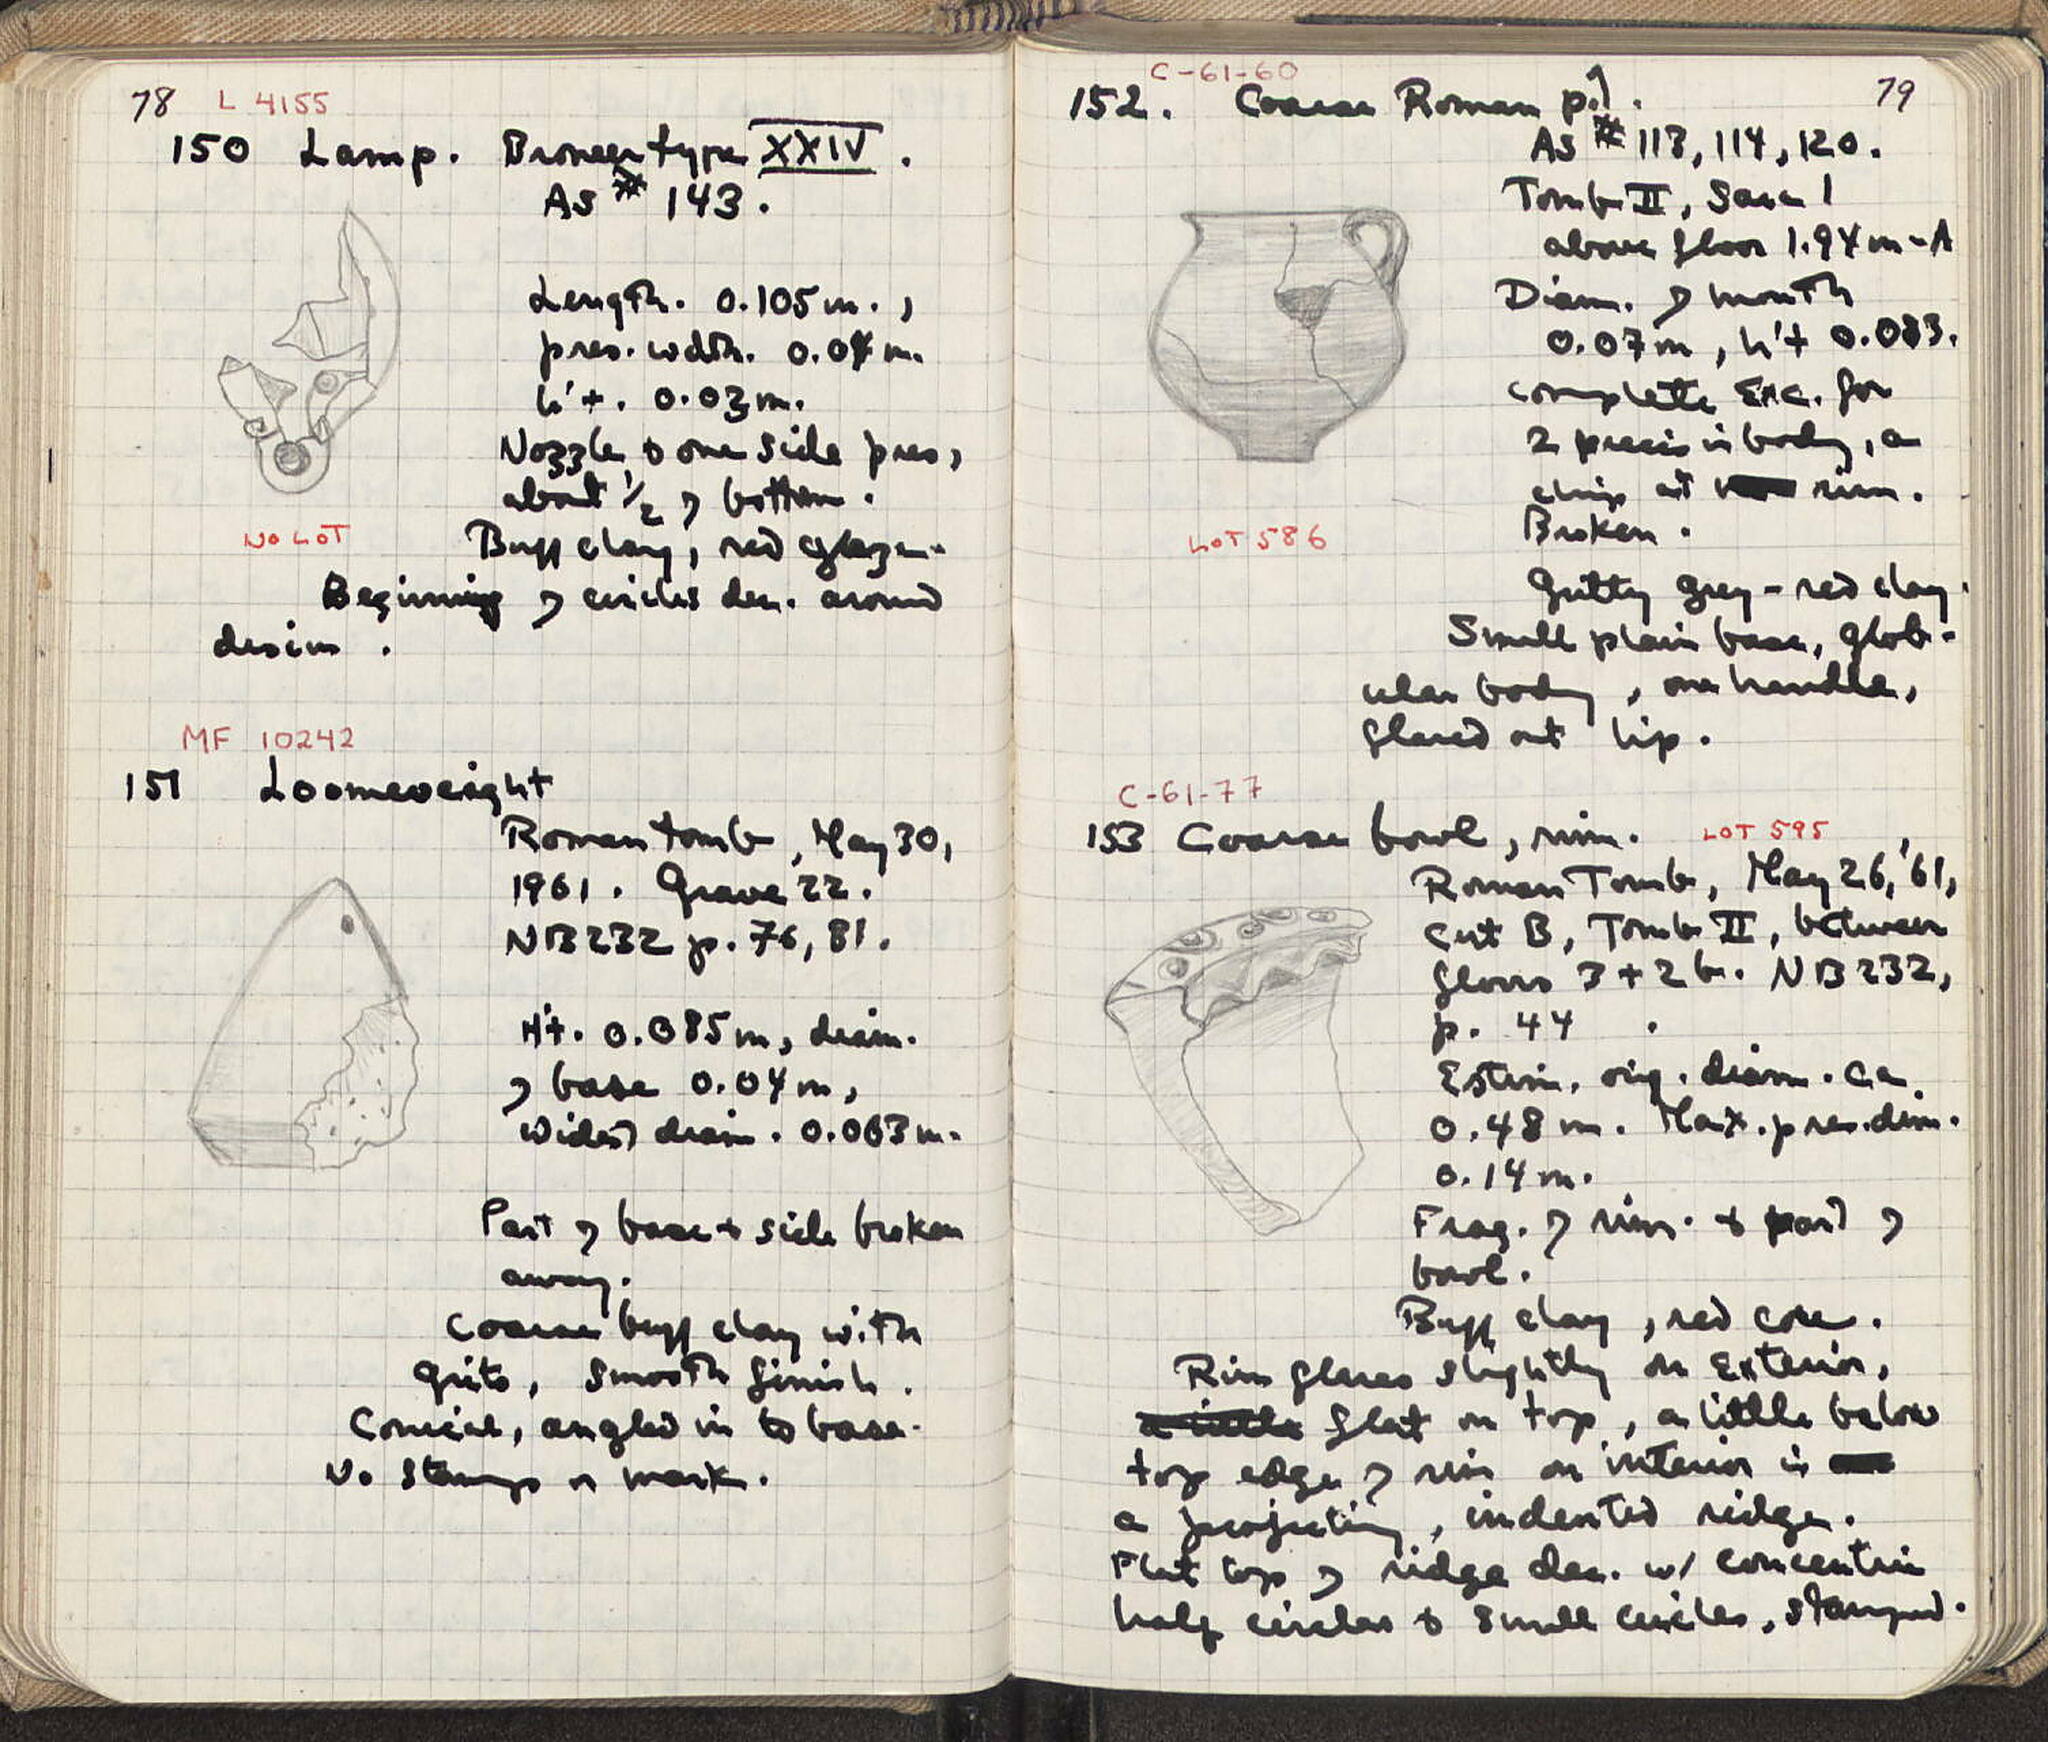 78 L 4155
150 Lamp. Broneer type XXIV.
As # 143.
Length. 0.105 m.,
pres. width. 0.04 m.
h't. 0.03 m.
Nozzle & one side pres,
about 1/2 of bottom.
NO LOT
Buff clay, red glaze.
Beginning of circles dec. around
MF 10242
151 Loomweight
Roman tomb, May 30,
1961. Grave 22.
NB 232 p. 76, 81.
H't. 0.085 m, diam.
of base 0.04 m,
Widest diam. 0.063 m.
Part of base & side broken
away.
Coarse buff clay with
grits, smooth finish.
Conical, angled in to base.
No stamp or mark.
C-61-60
79
152. Coarse Roman
As # 113, 114, 120.
Tomb II, Sarc 1
above floor 1.94 m - A
Diam. of mouth
0.07 m, h't 0.083.
Complete Exc. for
2 pieces in body, a
chip at rim.
LOT 586
Broken.
Gritty grey-red clay.
Small plain base, glob-
ular body, one handle,
flared out lip.
C-61-77
153 Coarse bowl, rim. LOT 595
Roman Tomb, May 26, '61,
Cut B, Tomb II, between
floors 3 + 2 b. NB 232,
p. 44.
Estim. orig. diam. ca
0.48 m. Max. pres. dim.
0.14 m.
Frag. of rim. & part of
bowl.
Buff clay, red core.
Rim flares slightly on Exterior,
a little flat on top, a little below
top edge of rim on interior is
a projecting, indented ridge.
Flat top of ridge dec. w/ concentric
half circles & small circles, stamped.